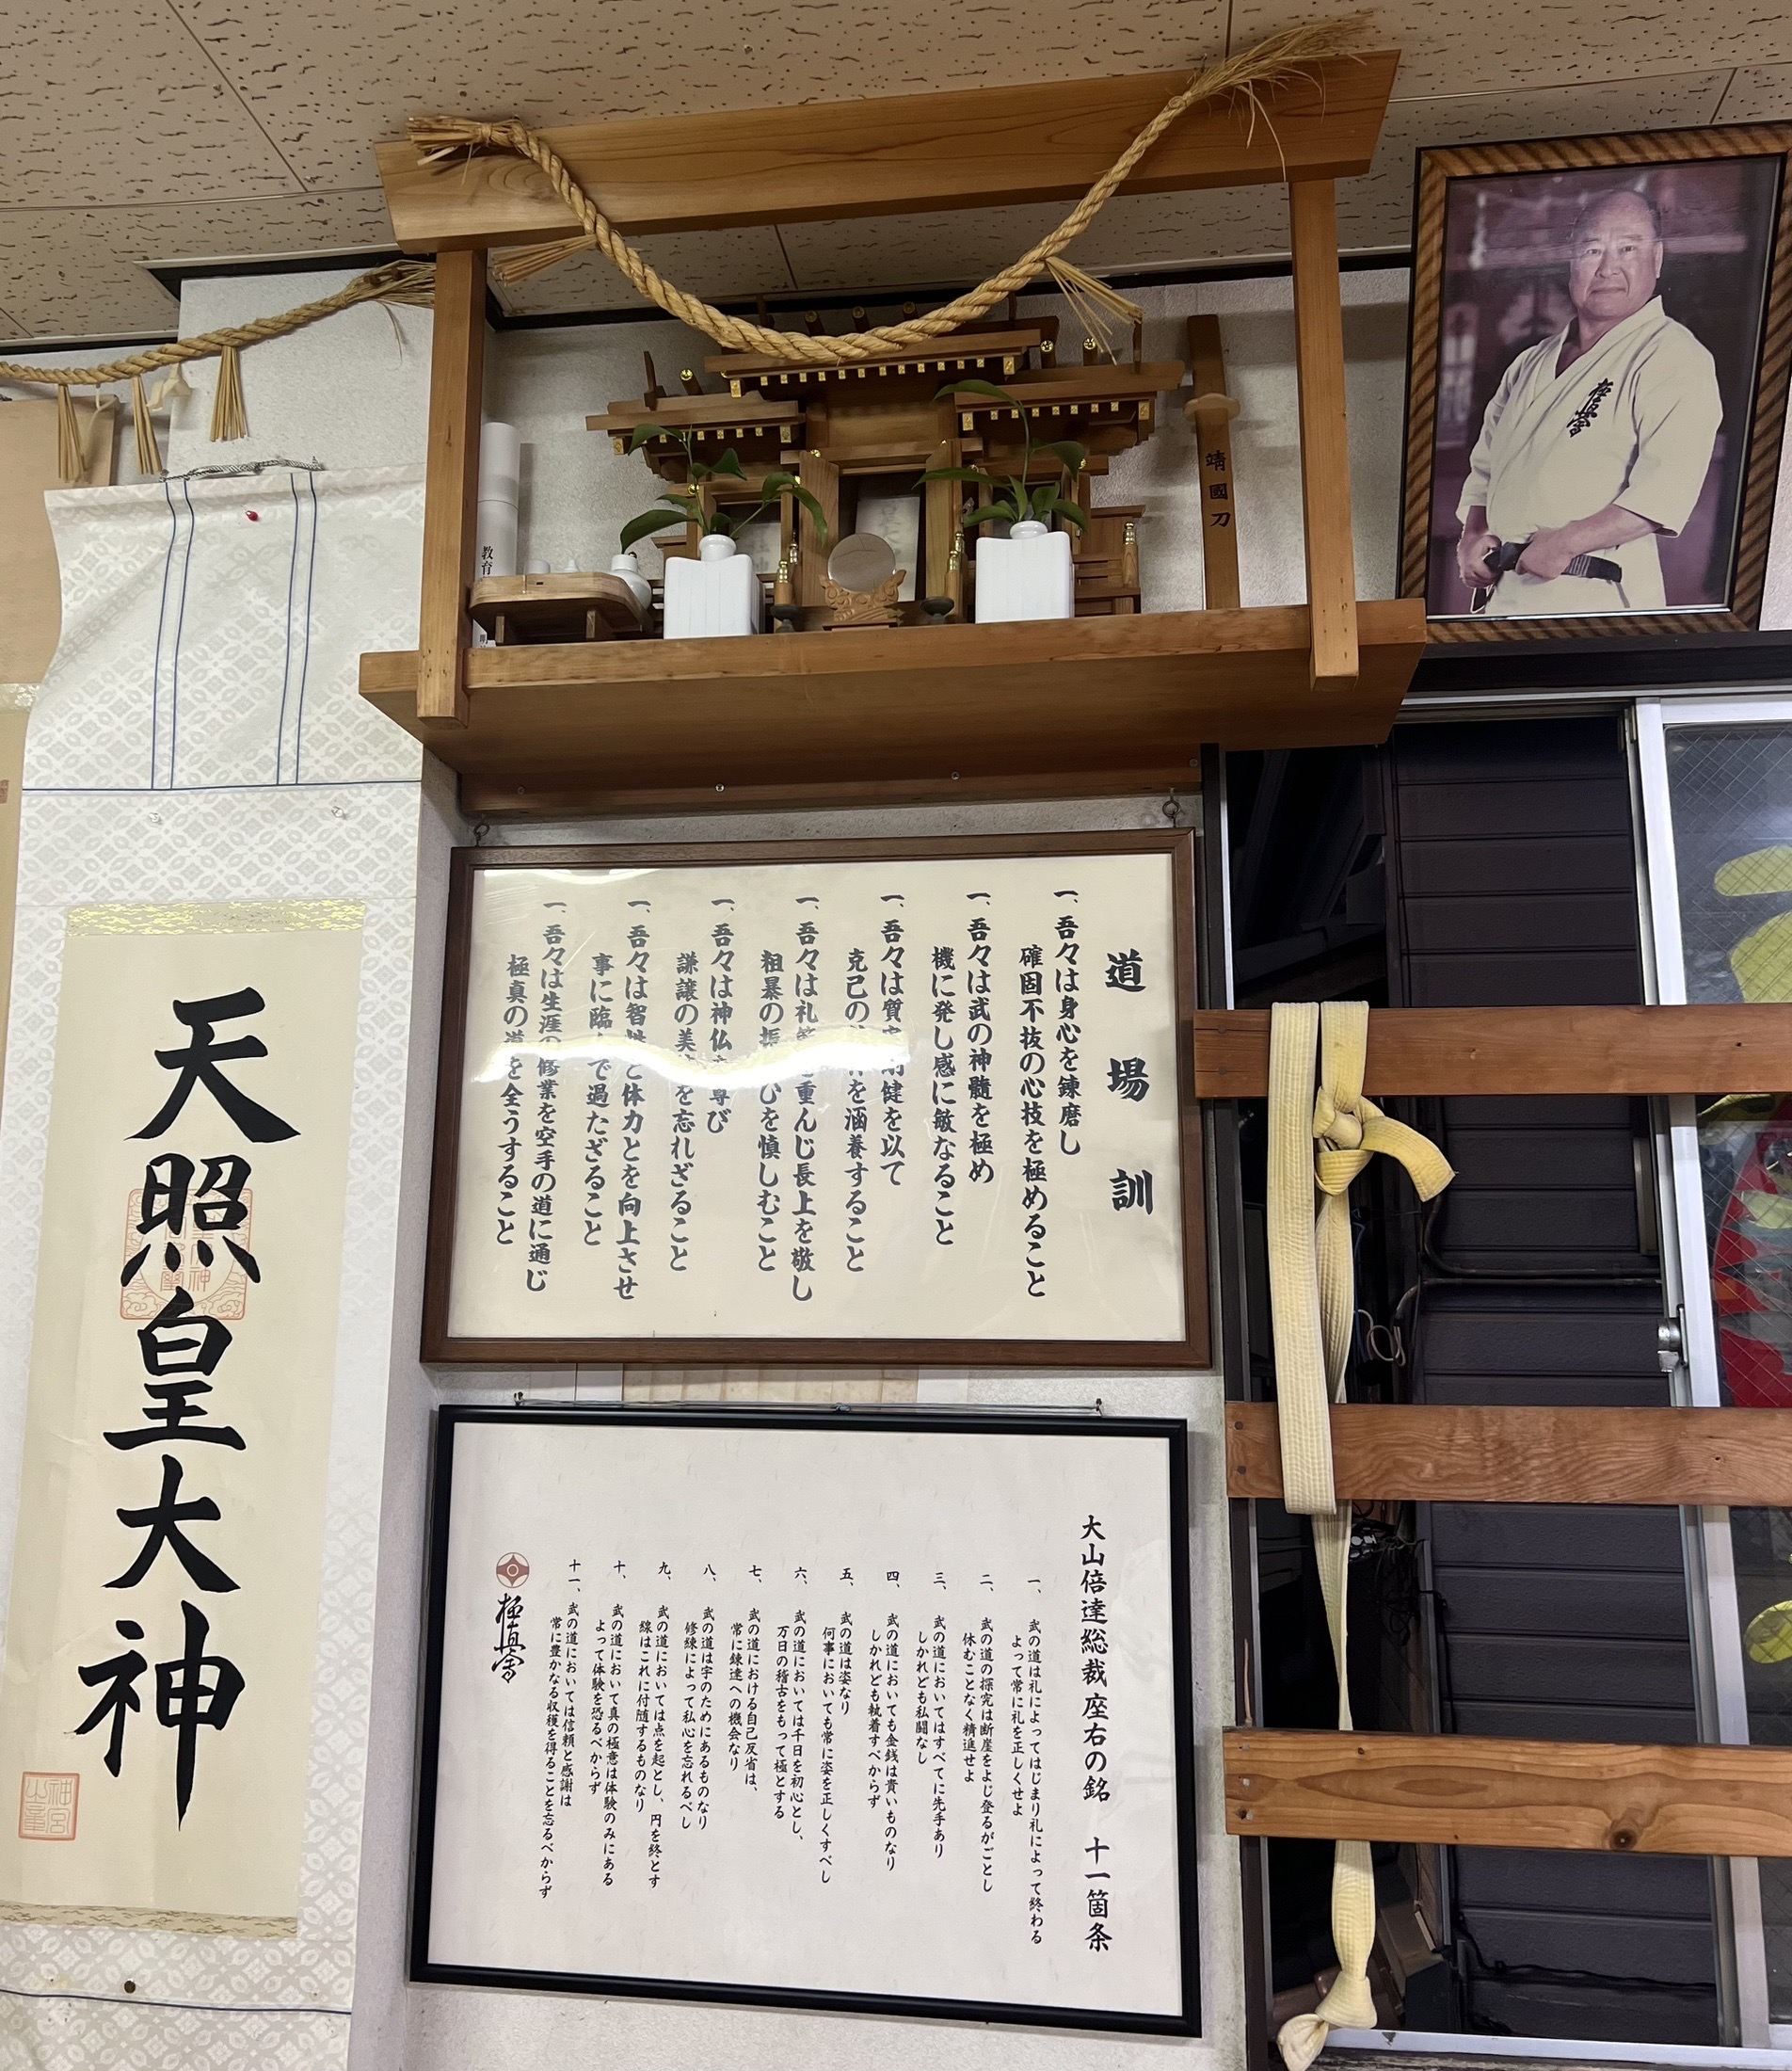 天照皇大神
教育
靖國刀
極真會
道場訓
一、吾々は身心を錬磨し
確固不抜の心技を極めること
一、吾々は武の神髄を極め
機に発し感に敏なること
一、吾々は質実剛健を以て
克己の精神を涵養すること
一、吾々は礼節を重んじ長上を敬し
粗暴の振舞いを慎しむこと
一、吾々は神仏を尊び
謙譲の美徳を忘れざること
一、吾々は智性と体力とを向上させ
事に臨んで過たざること
一、吾々は生涯の修業を空手の道に通じ
極真の道を全うすること
大山倍達総裁座右の銘 十一箇条
一、武の道は礼によってはじまり礼によって終わる
よって常に礼を正しくせよ
二、武の道の探究は断崖をよじ登るがごとし
休むことなく精進せよ
三、武の道においてはすべてに先手あり
しかれども私闘なし
四、武の道においても金銭は貴いものなり
しかれども執着すべからず
五、武の道は姿なり
何事においても常に姿を正しくすべし
六、武の道においては千日を初心とし、
万日の稽古をもって極とする
七、武の道における自己反省は、
常に錬達への機会なり
八、武の道は宇のためにあるものなり
修練によって私心を忘れるべし
九、武の道においては点を起とし、円を終とす
線はこれに付随するものなり
十、武の道において真の極意は体験のみにある
よって体験を恐るべからず
十一、武の道においては信頼と感謝は
常に豊かなる収穫を得ることを忘るべからず
極真會